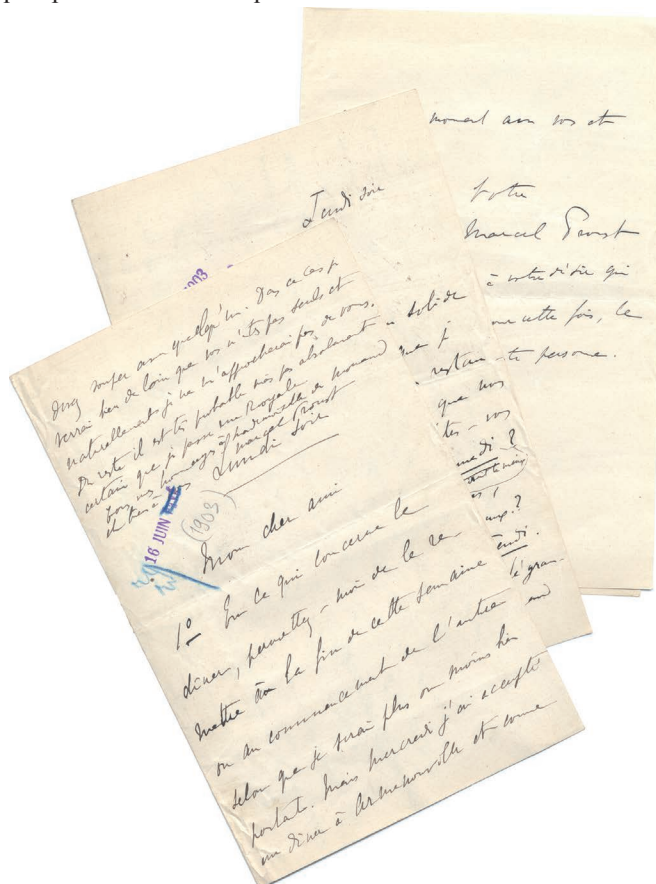 moment avec vos et
Votre
Marcel Proust
à votre disposition qui
cette fois, le
restau te personne.
Lundi soir
1903
solide
que je
que nos
vos
medi ?
?
endi.
diney souper avec quelqu'un. Dans ce cas je
verrai bien de loin que vos n'êtes pas seuls et
naturellement je ne m'approcherai pas de vous.
Du reste il est très probable mais pas absolument
certain que je passe rue Royale.
Tous mes hommages à Mademoiselle de Mornand
et bien à vous Marcel Proust
Lundi soir
16 JUIN
(1903)
Mon cher ami
1º En ce qui concerne le
dîner, permettez-moi de le re
mettre à la fin de cette semaine
ou au commencement de l'autre
selon que je serai plus ou moins bien
portant. Mais mercredi j'ai accepté
un dîner à Armenonville et comme